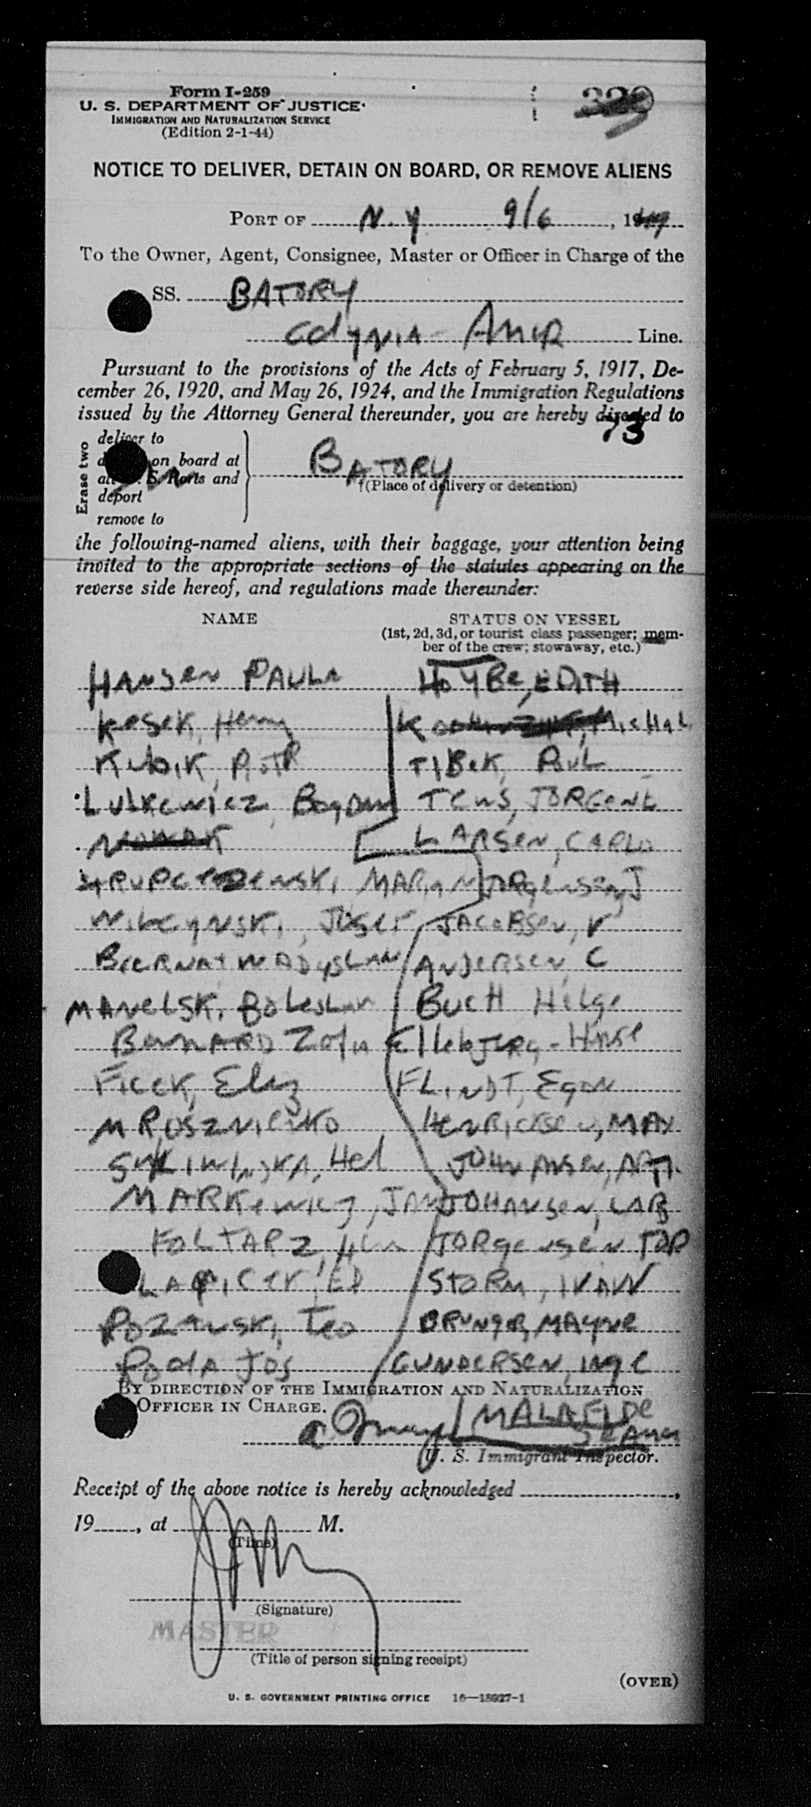 Form I-259
U. S. DEPARTMENT OF JUSTICE
IMMIGRATION AND NATURALIZATION SERVICE
(Edition 2-1-44)
NOTICE TO DELIVER, DETAIN ON BOARD, OR REMOVE ALIENS
PORT OF N. Y 9/6, 19
To the Owner, Agent, Consignee, Master or Officer in Charge of the
SS. BATORY
Gdynia - Amer Line.
Pursuant to the provisions of the Acts of February 5, 1917, De-
cember 26, 1920, and May 26, 1924, and the Immigration Regulations
issued by the Attorney General thereunder, you are hereby directed to
73
Erase two
deliver to
on board at
Ports and
deport
remove to
BATORY
(Place of delivery or detention)
the following-named aliens, with their baggage, your attention being
invited to the appropriate sections of the statutes appearing on the
reverse side hereof, and regulations made thereunder:
NAME STATUS ON VESSEL
(1st, 2d, 3d, or tourist class passenger; mem-
ber of the crew; stowaway, etc.)
HANSEN PAULA HOYBE, EDITH
KOSEK, Henry Michal
KUBIK, PIOTR TIBEK, POUL
LULKEWICZ, Bogdan TEWS,
NOWAK LARSEN, CARLO
MARIAN JORGENSEN, J
JOSEF JACOBSEN, V
BIERNAT WADYSLAW ANDERSEN, C
MANELSK, Boleslaw BUCH Helge
BERNARD Zofia
FICEK, Eliz FLINDT, Egon
MROSZNIENKO HENRICKSEN, MAX
Hel JOHANSEN,
MARKEWICZ, JAN JOHANSEN,
FOLTARZ, JORGENSEN
ED STORM, IVAN
Teo
Podla Jos GUNDERSEN, INGE
BY DIRECTION OF THE IMMIGRATION AND NATURALIZATION
OFFICER IN CHARGE.
U. S. Immigrant Inspector.
Receipt of the above notice is hereby acknowledged ,
19 , at M.
(Time)
(Signature)
MASTER
(Title of person signing receipt)
(OVER)
U. S. GOVERNMENT PRINTING OFFICE 16—13927-1